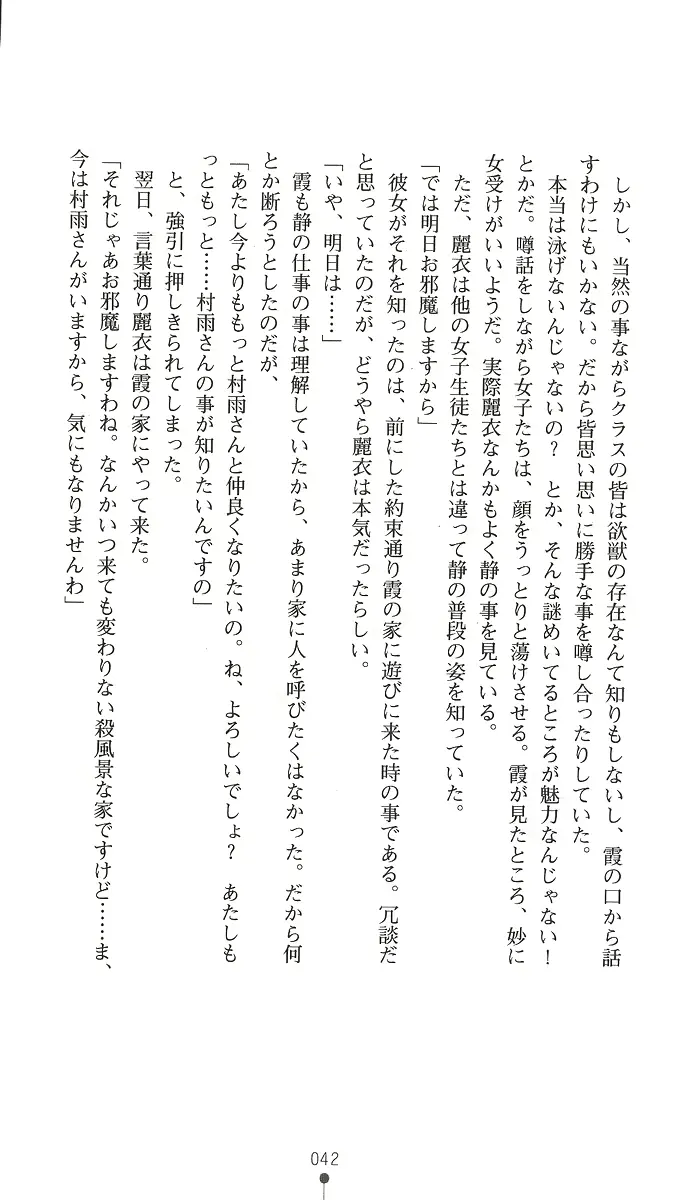 しかし、当然の事ながらクラスの皆は欲獣の存在なんて知りもしないし、霞の口から話
すわけにもいかない。だから皆思い思いに勝手な事を噂し合ったりしていた。
本当は泳げないんじゃないの？　とか、そんな謎めいてるところが魅力なんじゃない！
とかだ。噂話をしながら女子たちは、顔をうっとりと蕩けさせる。霞が見たところ、妙に
女受けがいいようだ。実際麗衣なんかもよく静の事を見ている。
ただ、麗衣は他の女子生徒たちとは違って静の普段の姿を知っていた。
「では明日お邪魔しますから」
彼女がそれを知ったのは、前にした約束通り霞の家に遊びに来た時の事である。冗談だ
と思っていたのだが、どうやら麗衣は本気だったらしい。
「いや、明日は……」
霞も静の仕事の事は理解していたから、あまり家に人を呼びたくはなかった。だから何
とか断ろうとしたのだが、
「あたし今よりももっと村雨さんと仲良くなりたいの。ね、よろしいでしょ？　あたしも
っともっと……村雨さんの事が知りたいんですの」
と、強引に押しきられてしまった。
翌日、言葉通り麗衣は霞の家にやって来た。
「それじゃあお邪魔しますわね。なんかいつ来ても変わりない殺風景な家ですけど……ま、
今は村雨さんがいますから、気にもなりませんわ」
042